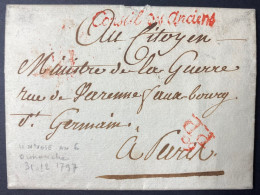 Conseil des Anciens
Au Citoyen
Ministre de la Guerre
rue de Varenne faux bourg
St. Germain
à Paris
an 6
31.12.1797